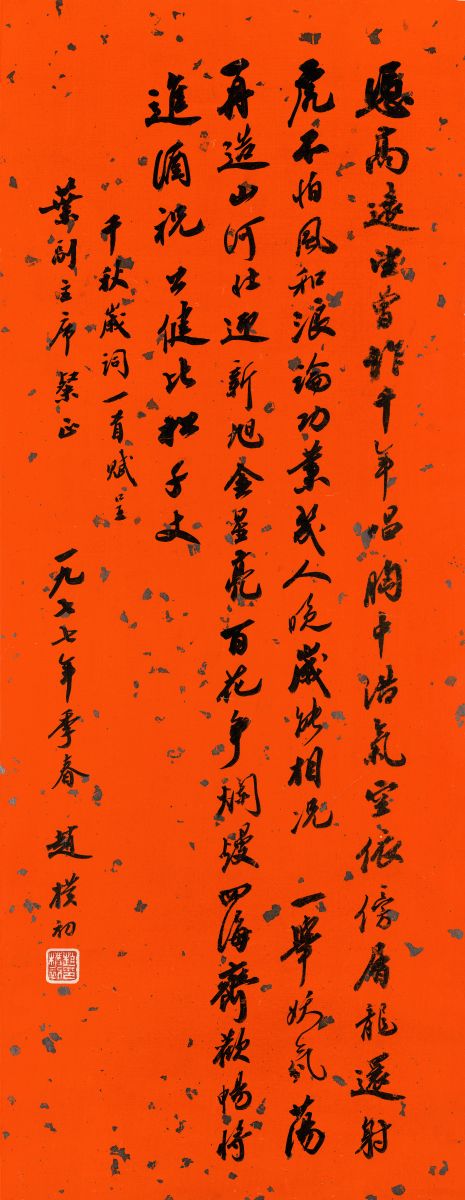 憑高遠望曾作千年唱胸中浩氣空依傍屠龍還射
虎不怕風和浪論功業幾人晚歲能相況一舉妖氛蕩
再造山河壯迎新旭金星亮百花爭斕熳四海齊歡暢將
進酒祝公健比松千丈
千秋歲詞一首賦呈
葉副主席棨正
一九七七年季春趙樸初